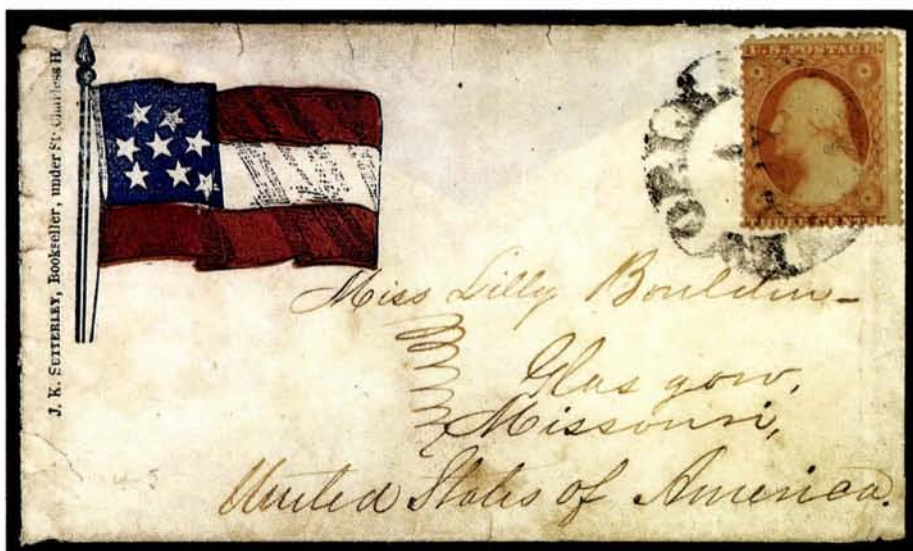 J. K. SUTTERLEY, Bookseller, under St. Charles H
U.S. POSTAGE
Miss Lilly Bouldin
Glasgow,
Missouri,
United States of America.